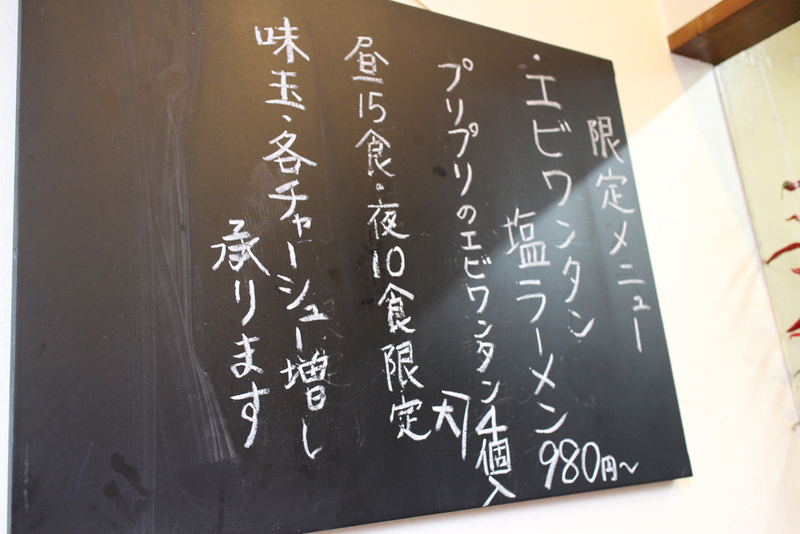 限定メニュー
・エビワンタン
塩ラーメン
980円〜
プリプリのエビワンタン4個入
昼15食・夜10食限定
味玉・各チャーシュー増し
承ります